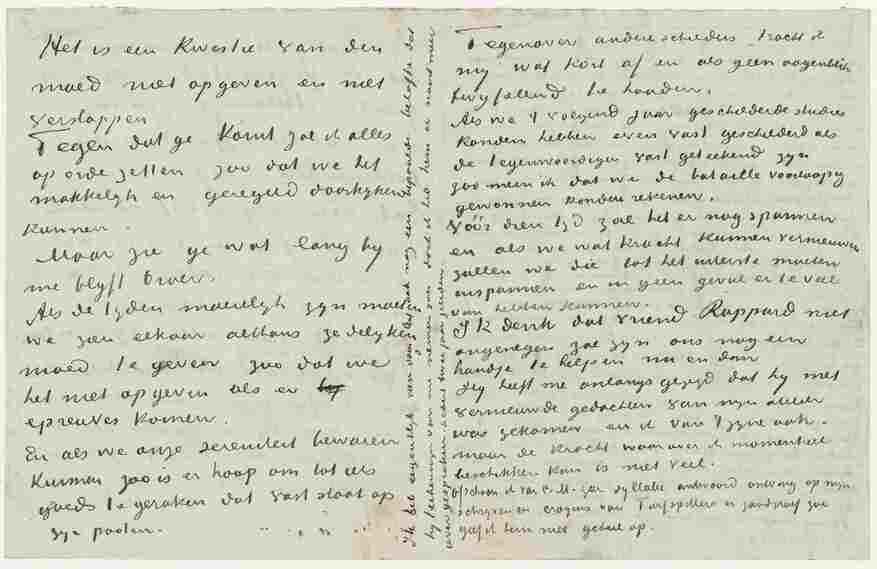 Het is een kwestie van den
moed niet opgeven en niet
verslappen
Tegen dat ge komt zal ik alles
op orde zetten zoo dat we het
makkelijk en geregeld doorkijken
kunnen.
Maar zie ge wat lang by
me blyft broer.
Als de tyden moeielyk zyn moeten
we zien elkaar althans zedelyken
moed te geven zoo dat we
het niet opgeven als er by
epreuves komen.
En als we onze sereniteit bewaren
kunnen zoo is er hoop om tot iets
goeds te geraken dat vast staat op
zyn pooten.
Ik heb eigenlyk van van Rappard nog een bepaalde belofte dat
hy teekeningen van me nemen zou doch ik heb hem er nooit meer
over gesproken sedert twee jaar geleden.
Tegenover andere schilders tracht ik
my wat kort af en als geen oogenblik
twyfelend te houden.
Als we 't volgend jaar geschilderde studies
konden hebben even vast geschilderd als
de tegenwoordige vast geteekend zyn
zoo meen ik dat we de bataille voorloopig
gewonnen konden rekenen.
Vóór dien tyd zal het er nog spannen
en als we wat kracht kunnen vernieuwen
zullen we die tot het uiterste moeten
inspannen en in geen geval er te veel
van hebben kunnen.
Ik denk dat vriend Rappard niet
ongenegen zal zyn ons nog een
handje te helpen nu en dan
Hy heeft me onlangs gezegd dat hy met
vernieuwde gedachten van myn atelier
was gekomen en ik van 't zyne ook.
maar de kracht waarover ik momenteel
beschikken kan is niet veel.
Ofschoon ik van C.M. geen syllabe antwoord ontving op myn
schryven en croquis van Turfspitters en zandgraf zoo
geef ik hem niet geheel op.